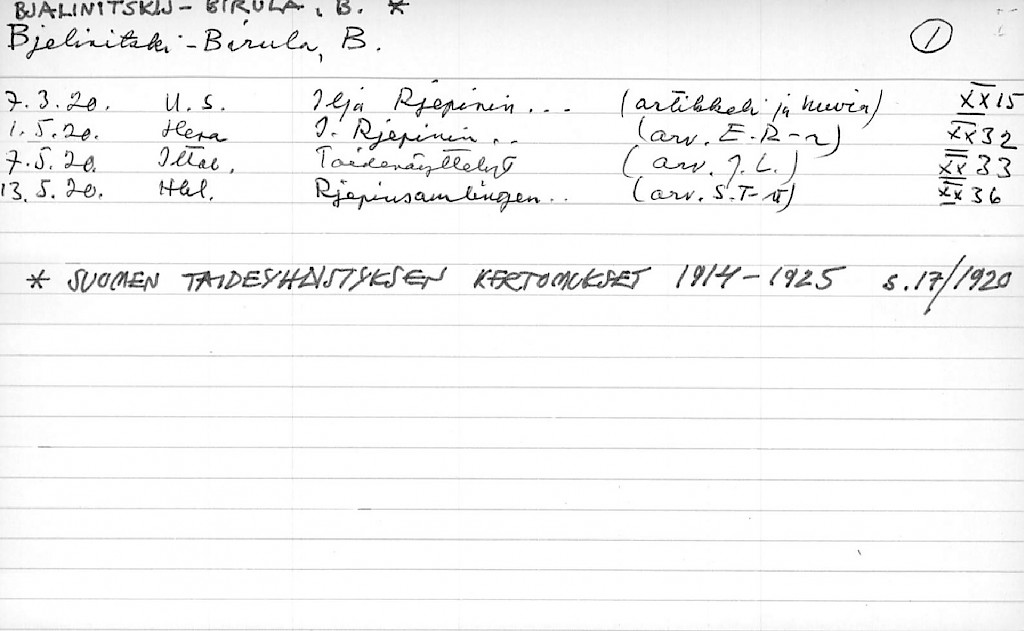 BJALINITSKIJ - BIRULA, B. *
Bjelinitski - Birula, B. 1
7.3.20. U.S. Ilja Rjepinin... (artikkeli ja kuvia) XX 15
1.5.20. Hera I. Rjepinin.. (arv. E.R-r) XX 32
7.5.20. Iltal. Taidenäyttelyt (arv. J.L.) XX 33
13.5.20. Hbl. Rjepinsamlingen.. (arv. S.T-ll) XX 36
* SUOMEN TAIDEYHDISTYKSEN KERTOMUKSET 1914-1925 s.17/1920